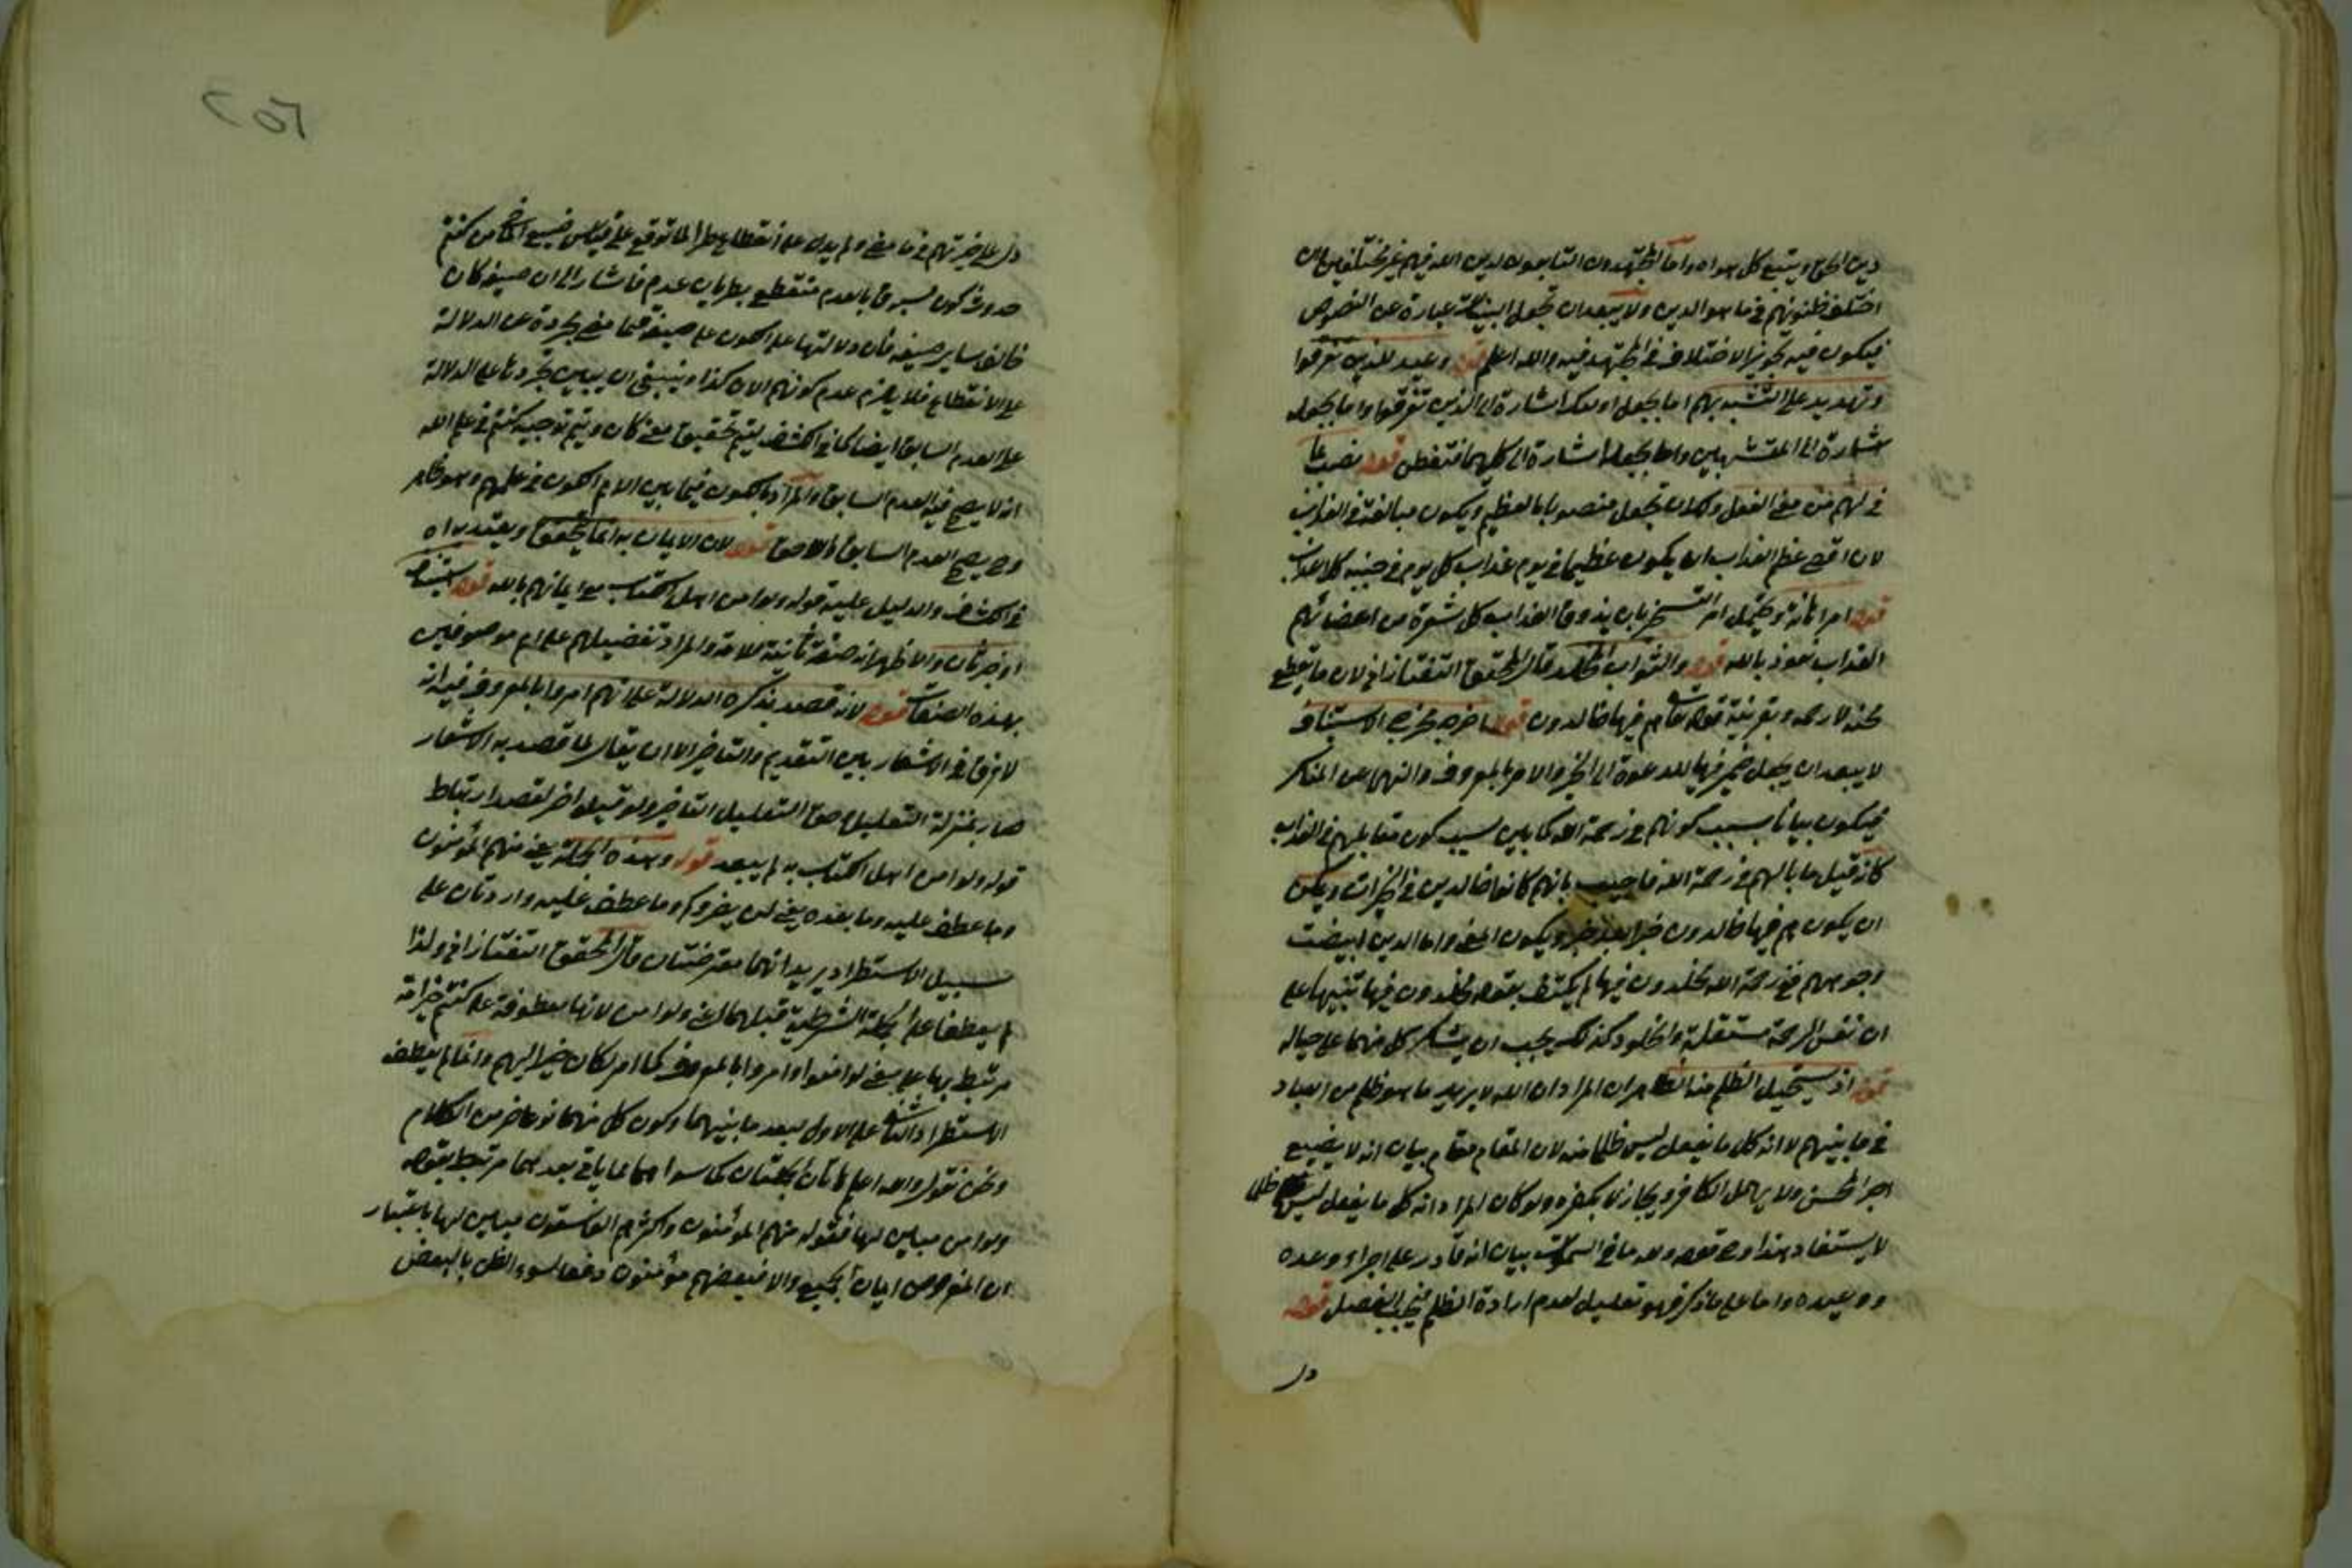 دين الحق ويتبع كل هواه واما المجتهدون التابعون لدين الله فهم غير مختلفين وان
اختلف ظنونهم في ما هو الدين ولا يبعد ان تجعل البينات عبارة عن النصوص
فيكون فيه تجويز الاختلاف في المجتهد فيه والله اعلم قوله وعيد للذين تفرقوا
وتهديد على التشبه بهم اما بجعل اولئك اشارة الى الذين تفرقوا واما بجعله
اشارة الى المتشبهين واما بجعله اشارة الى كليهما فتفطن قوله نصب بما
في لهم من معنى الفعل ولك ان تجعل منصوبا بالعظيم ويكون مبالغة في العذاب
لان اقصى عظم العذاب ان يكون عظيما في يوم عذاب كل يوم في جنبه كلا عذاب
قوله امر اهانة ويحتمل امر التسخير بان يذوق العذاب كل شعرة من اعضائهم
العذاب نعوذ بالله قوله والثواب المخلد قال المحقق التفتازاني لان ما
بقرينة قوله تعالى هم فيها خالدون قوله اخرجه مخرج الاستيناف
لا يبعد ان يجعل ضمير فيها للدعوة الى الخير والامر بالمعروف والنهي عن المنكر
فيكون بيانا بسبب كونهم في رحمة الله كما بين سبب كون مقابلهم في العذاب
كانه قيل ما بالهم في رحمة الله فاجيب بانهم كانوا خالدين في الخيرات ويمكن
ان يكون هم فيها خالدون خبرا بعد خبر ويكون المعنى واما الذين ابيضت
وجوههم ففي رحمة الله مخلدون فيها لم يكتف بقوله مخلدون فيها تنبيها على
ان نفس الرحمة مستقلة والخلود كذلك يجب ان يشكر كل منهما على حياله
قوله اذ يستحيل الظلم منه الظاهر ان المراد ان الله لا يريد ما هو ظلم من العباد
في ما بينهم لا انه كل ما يفعل ليس ظلما منه لان المقام مقام بيان انه لا يضيع
اجر المحسن ولا يهمل الكافر ويجازى بكفره ولو كان المراد انه كل ما يفعل ليس ظلما
لا يستفاد هذا وح قوله ولله ما في السموات بيان انه قادر على اجراء وعده
ووعيده واما على ما ذكر فهو تعليل لعدم ارادة الظلم قوله
دل
٢٥٦
دل على خيريتهم في ما مضى ولم يدل على انقطاع طرأ لما توقع على قياس
حدوث كون مسبوق بالعدم منقطع بطريان عدم فاشار الى ان صيغة كان
خالف ساير صيغه فان دلالتها على الكون على صيغة فيما مضى مجردة عن الدلالة
على الانقطاع فلا يلزم عدم كونهم الان كذا وينبغي ان يبين تجردها على الدلالة
على العدم السابق ايضا كما في الكشاف ليتم تحقيق معنى كان ويتم توجيه كنتم في علم الله
انه لا يصح فيه العدم السابق والمراد بالكون فيما بين الامم الكون في علمهم وهو ظاهر
وح يصح العدم السابق واللاحق قوله لان الايمان به انما يحقق ويعتد به اه
في الكشاف والدليل عليه قوله ولو امن اهل الكتاب مع ايمانهم بالله قوله استيناف
او خبر ثان والاظهر انه صفة ثانية للامة والمراد تفضيلهم على امم موصوفين
بهذه الصفات قوله لانه قصد بذكره الدلالة على انهم امروا بالمعروف فيه انه
لا فرق في الاشعار بين التقديم والتاخير الا ان يقال لما قصد به الاشعار
صار بمنزلة التعليل وحق التعليل التاخير ولو قيل اخر لقصد ارتباط
قوله ولو امن اهل الكتاب به لم يبعد قوله وهذه الجملة يعني منهم المؤمنون
وما عطف عليه وما بعده يعني لن يضروكم وما عطف عليه واردتان على
سبيل الاستطراد يريد انهما معترضتان قال المحقق التفتازاني ولذا
لم يعطفا على الجملة الشرطية قبلهما اعني ولو امن لانها معطوفة على كنتم خير امة
مرتبط بها على معنى لو امنوا وامروا بالمعروف كما امر لكان خيرا لهم وانما لم يعطف
الاستطراد الثاني على الاول لبعد ما بينهما وكون كل منهما نوعا اخر من الكلام
ونحن نقول والله اعلم هاتان الجملتان كما سواهما مما ياتي بعدهما مرتبط بقوله
ولو امن مبين لها فقوله منهم المؤمنون واكثرهم الفاسقون مبين لها باعتبار
ان المفروض ايمان الجميع والا فبعضهم مؤمنون دفعا لسوء الظن بالبعض